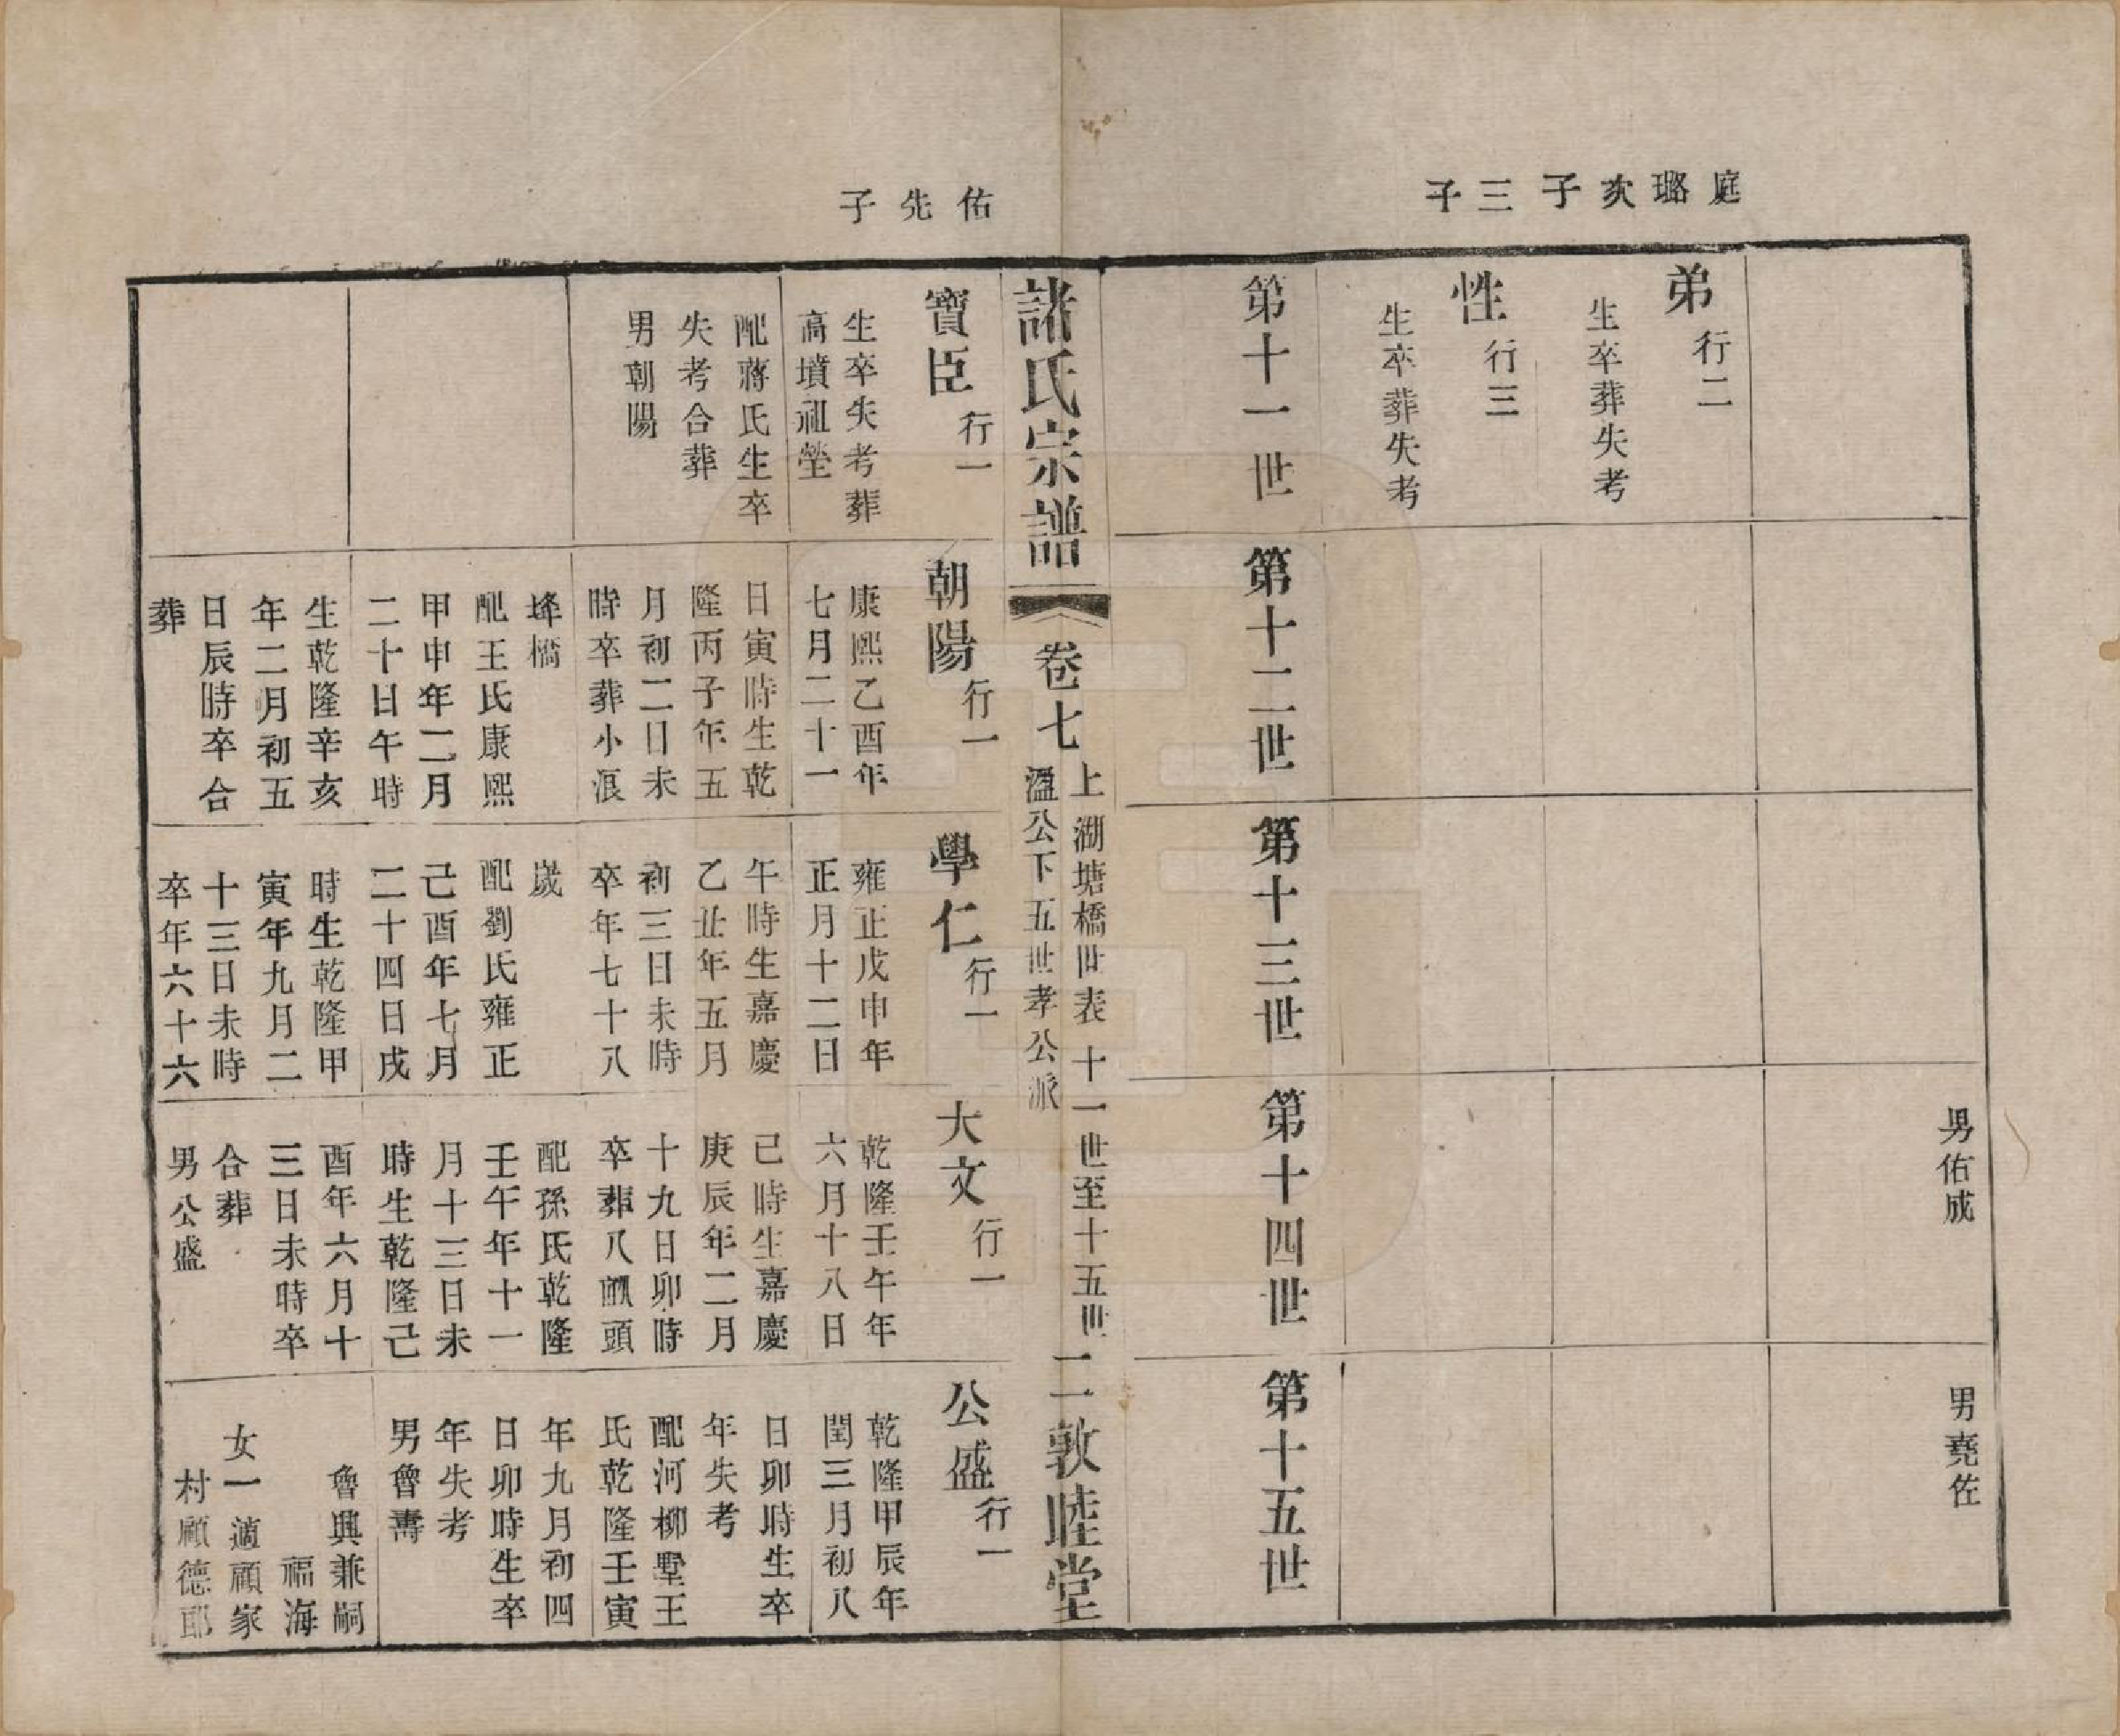 庭璐亥子三子
弟 行二
生卒葬失考
性 行三
生卒葬失考
男佑成
男堯佐
第十一世
第十二世
第十三世
第十四世
第十五世
諸氏宗譜
卷七
上湖塘橋世表 十一世至十五世
溫公下五世孝公派
二
敦睦堂
佑先子
寶臣 行一
生卒失考葬
高墳祖塋
配蔣氏生卒
失考合葬
男朝陽
朝陽 行一
康熙乙酉年
七月二十一
日寅時生乾
隆丙子年五
月初二日未
時卒葬小浪
烽橋
配王氏康熙
甲申年二月
二十日午時
生乾隆辛亥
年二月初五
日辰時卒合
葬
學仁 行一
雍正戊申年
正月十二日
午時生嘉慶
乙丑年五月
初三日未時
卒年七十八
歲
配劉氏雍正
己酉年七月
二十四日戌
時生乾隆甲
寅年九月二
十三日未時
卒年六十六
大文 行一
乾隆壬午年
六月十八日
己時生嘉慶
庚辰年二月
十九日卯時
卒葬八畝頭
配孫氏乾隆
壬午年十一
月十三日未
時生乾隆己
酉年六月十
三日未時卒
合葬
男公盛
公盛 行一
乾隆甲辰年
閏三月初八
日卯時生卒
年失考
配河柳墅王
氏乾隆壬寅
年九月初四
日卯時生卒
年失考
男魯壽
魯興兼嗣
福海
女一適顧家
村顧德耶